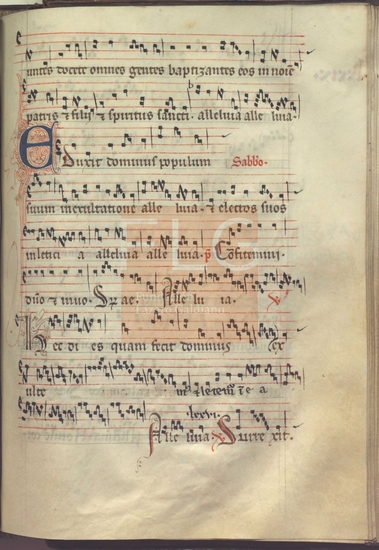 untes docete omnes gentes baptizantes eos in noīe
patris & filii & spiritus sancti. alleluia alle luia.
Eduxit dominus populum Sabbo.
suum in exultatione alle luia. & electos suos
in leticia alleluia alle luia. p̄ Cōfitemini.
Alle lu ia.
Hec di es quam fecit dominus ex
ulte
lxxvi.
Alle luia. Surre xit.